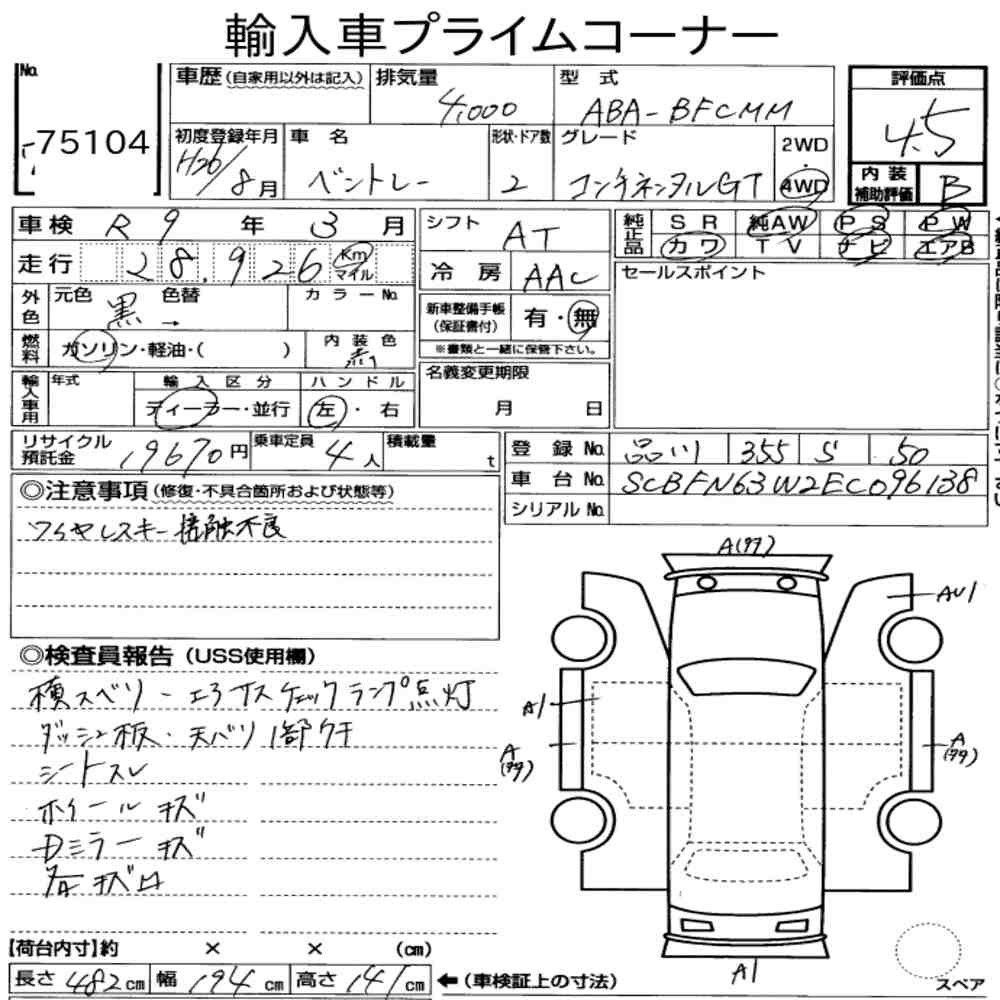 輸入車プライムコーナー
No. 75104
車歴 (自家用以外は記入)
排気量 4,000
型式 ABA-BFCMM
評価点 4.5
初度登録年月 H26/8月
車名 ベントレー
形状・ドア数 2
グレード コンチネンタルGT
2WD
4WD
内装補助評価 B
車検 R9年3月
走行 28,926 Km マイル
外色 元色 黒 色替 → カラーNo.
燃料 ガソリン・軽油・( ) 内装色 黒
輸入車用 年式 輸入区分 ディーラー・並行 ハンドル 左・右
シフト AT
冷房 AAC
新車整備手帳 (保証書付) 有・無
※書類と一緒に保管下さい。
名義変更期限 月 日
純正品 SR 純AW PS PW
カワ TV ナビ エアB
セールスポイント
リサイクル預託金 19670円
乗車定員 4人
積載量 t
登録No. 品川 355 S 50
車台No. SCBFN63W2EC096138
シリアルNo.
◎注意事項 (修復・不具合箇所および状態等)
ワイヤレスキー接触不良
◎検査員報告 (USS使用欄)
横スベリ-エラー
チェックランプ点灯
ダッシュ板・天バリ1部ウキ
シートスレ
ホイールキズ
Dミラーキズ
各キズ
A(タタ)
AU1
A1
A
(タタ)
A
(タタ)
A1
スペア
【荷台内寸】約 × × (cm)
長さ 482cm 幅 194cm 高さ 141cm ←(車検証上の寸法)